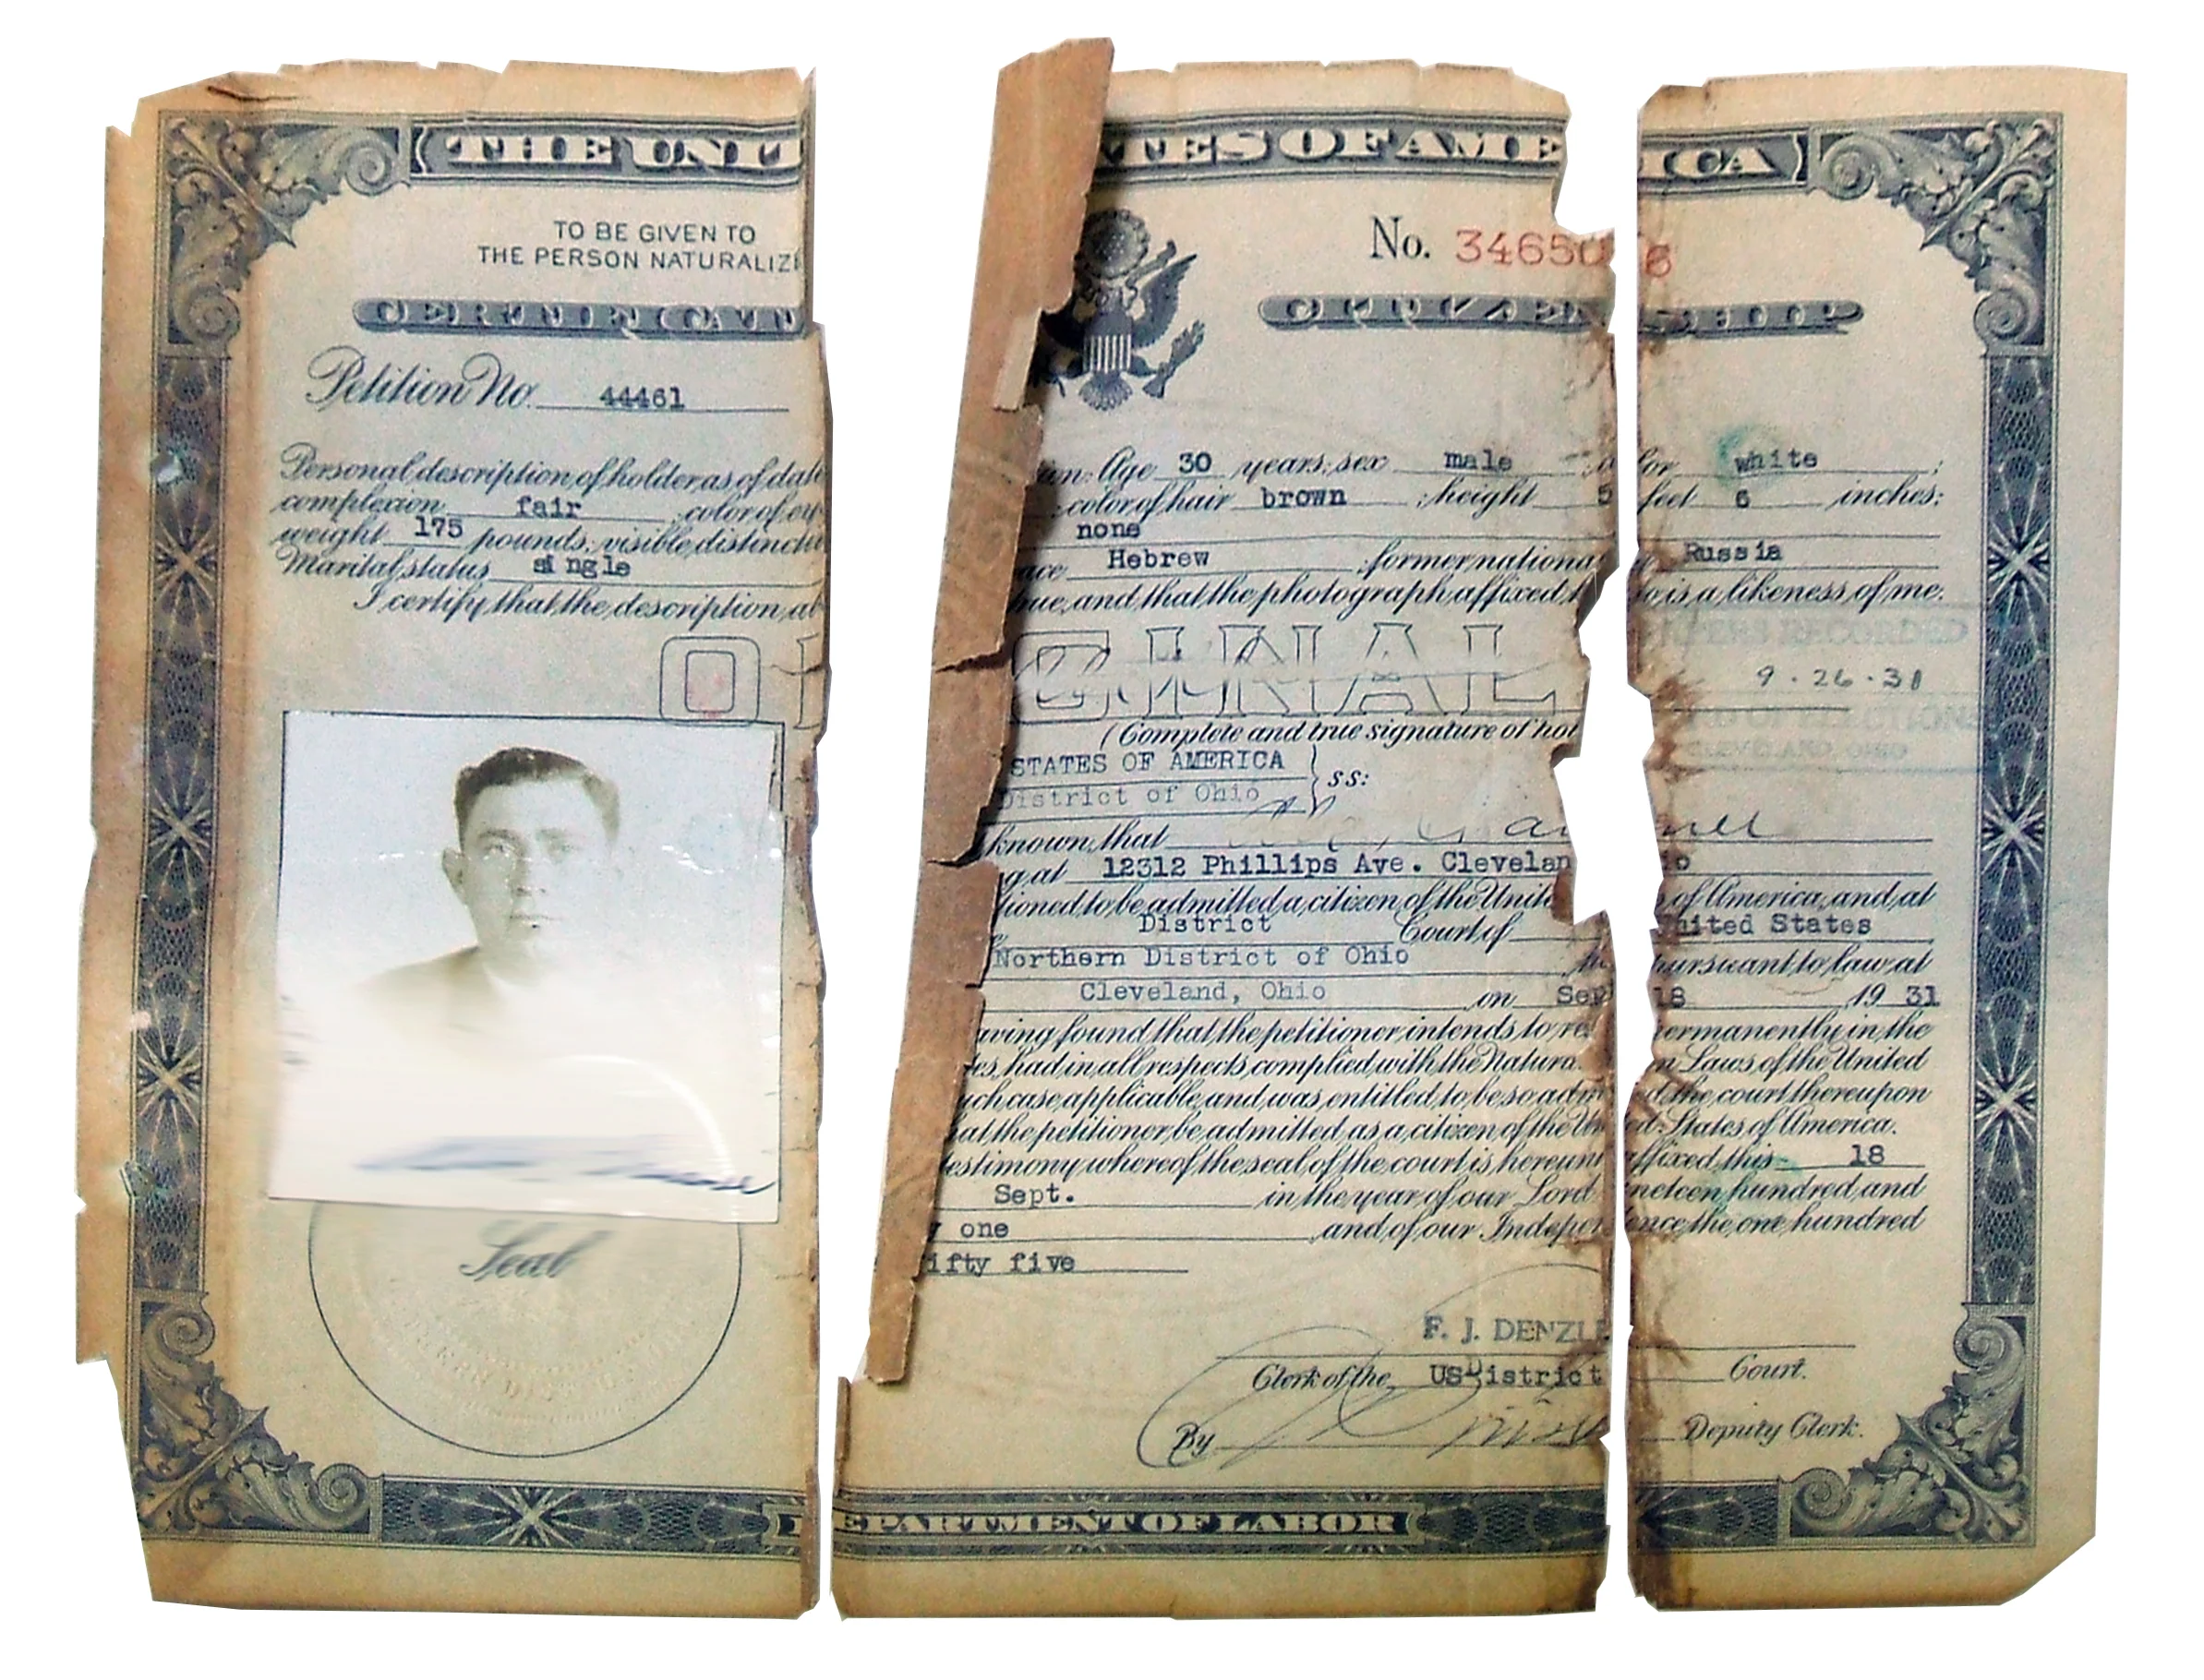 THE UNI TES OF AME ICA
TO BE GIVEN TO
THE PERSON NATURALIZ
No. 34650 6
CERTIFICAT CITIZEN SHIP
Petition No. 44461
Personal description of holder as of dat on: Age 30 years; sex male or white ;
complexion fair color of ey color of hair brown ; height 5 feet 6 inches;
weight 175 pounds; visible distincti none
Marital status single ace Hebrew ; former national Russia
I certify that the description ab rue, and that the photograph affixed to is a likeness of me.
O GINAL
9.26.31
(Complete and true signature of hol
STATES OF AMERICA } ss:
District of Ohio
known that
g at 12312 Phillips Ave. Clevelan io
tioned to be admitted a citizen of the Unite of America, and at
District Court of United States
Northern District of Ohio pursuant to law at
Cleveland, Ohio on Sep 18 1931
aving found that the petitioner intends to re permanently in the
es, had in all respects complied with the Natura n Laws of the United
uch case applicable, and was entitled to be so adm d the court thereupon
hat the petitioner be admitted as a citizen of the Un ed States of America.
testimony whereof the seal of the court is hereun affixed this 18
Sept. in the year of our Lord neteen hundred and
y one and of our Indepen ence the one hundred
ifty five
Seal
F. J. DENZL
Clerk of the US District Court.
By Deputy Clerk.
DEPARTMENT OF LABOR